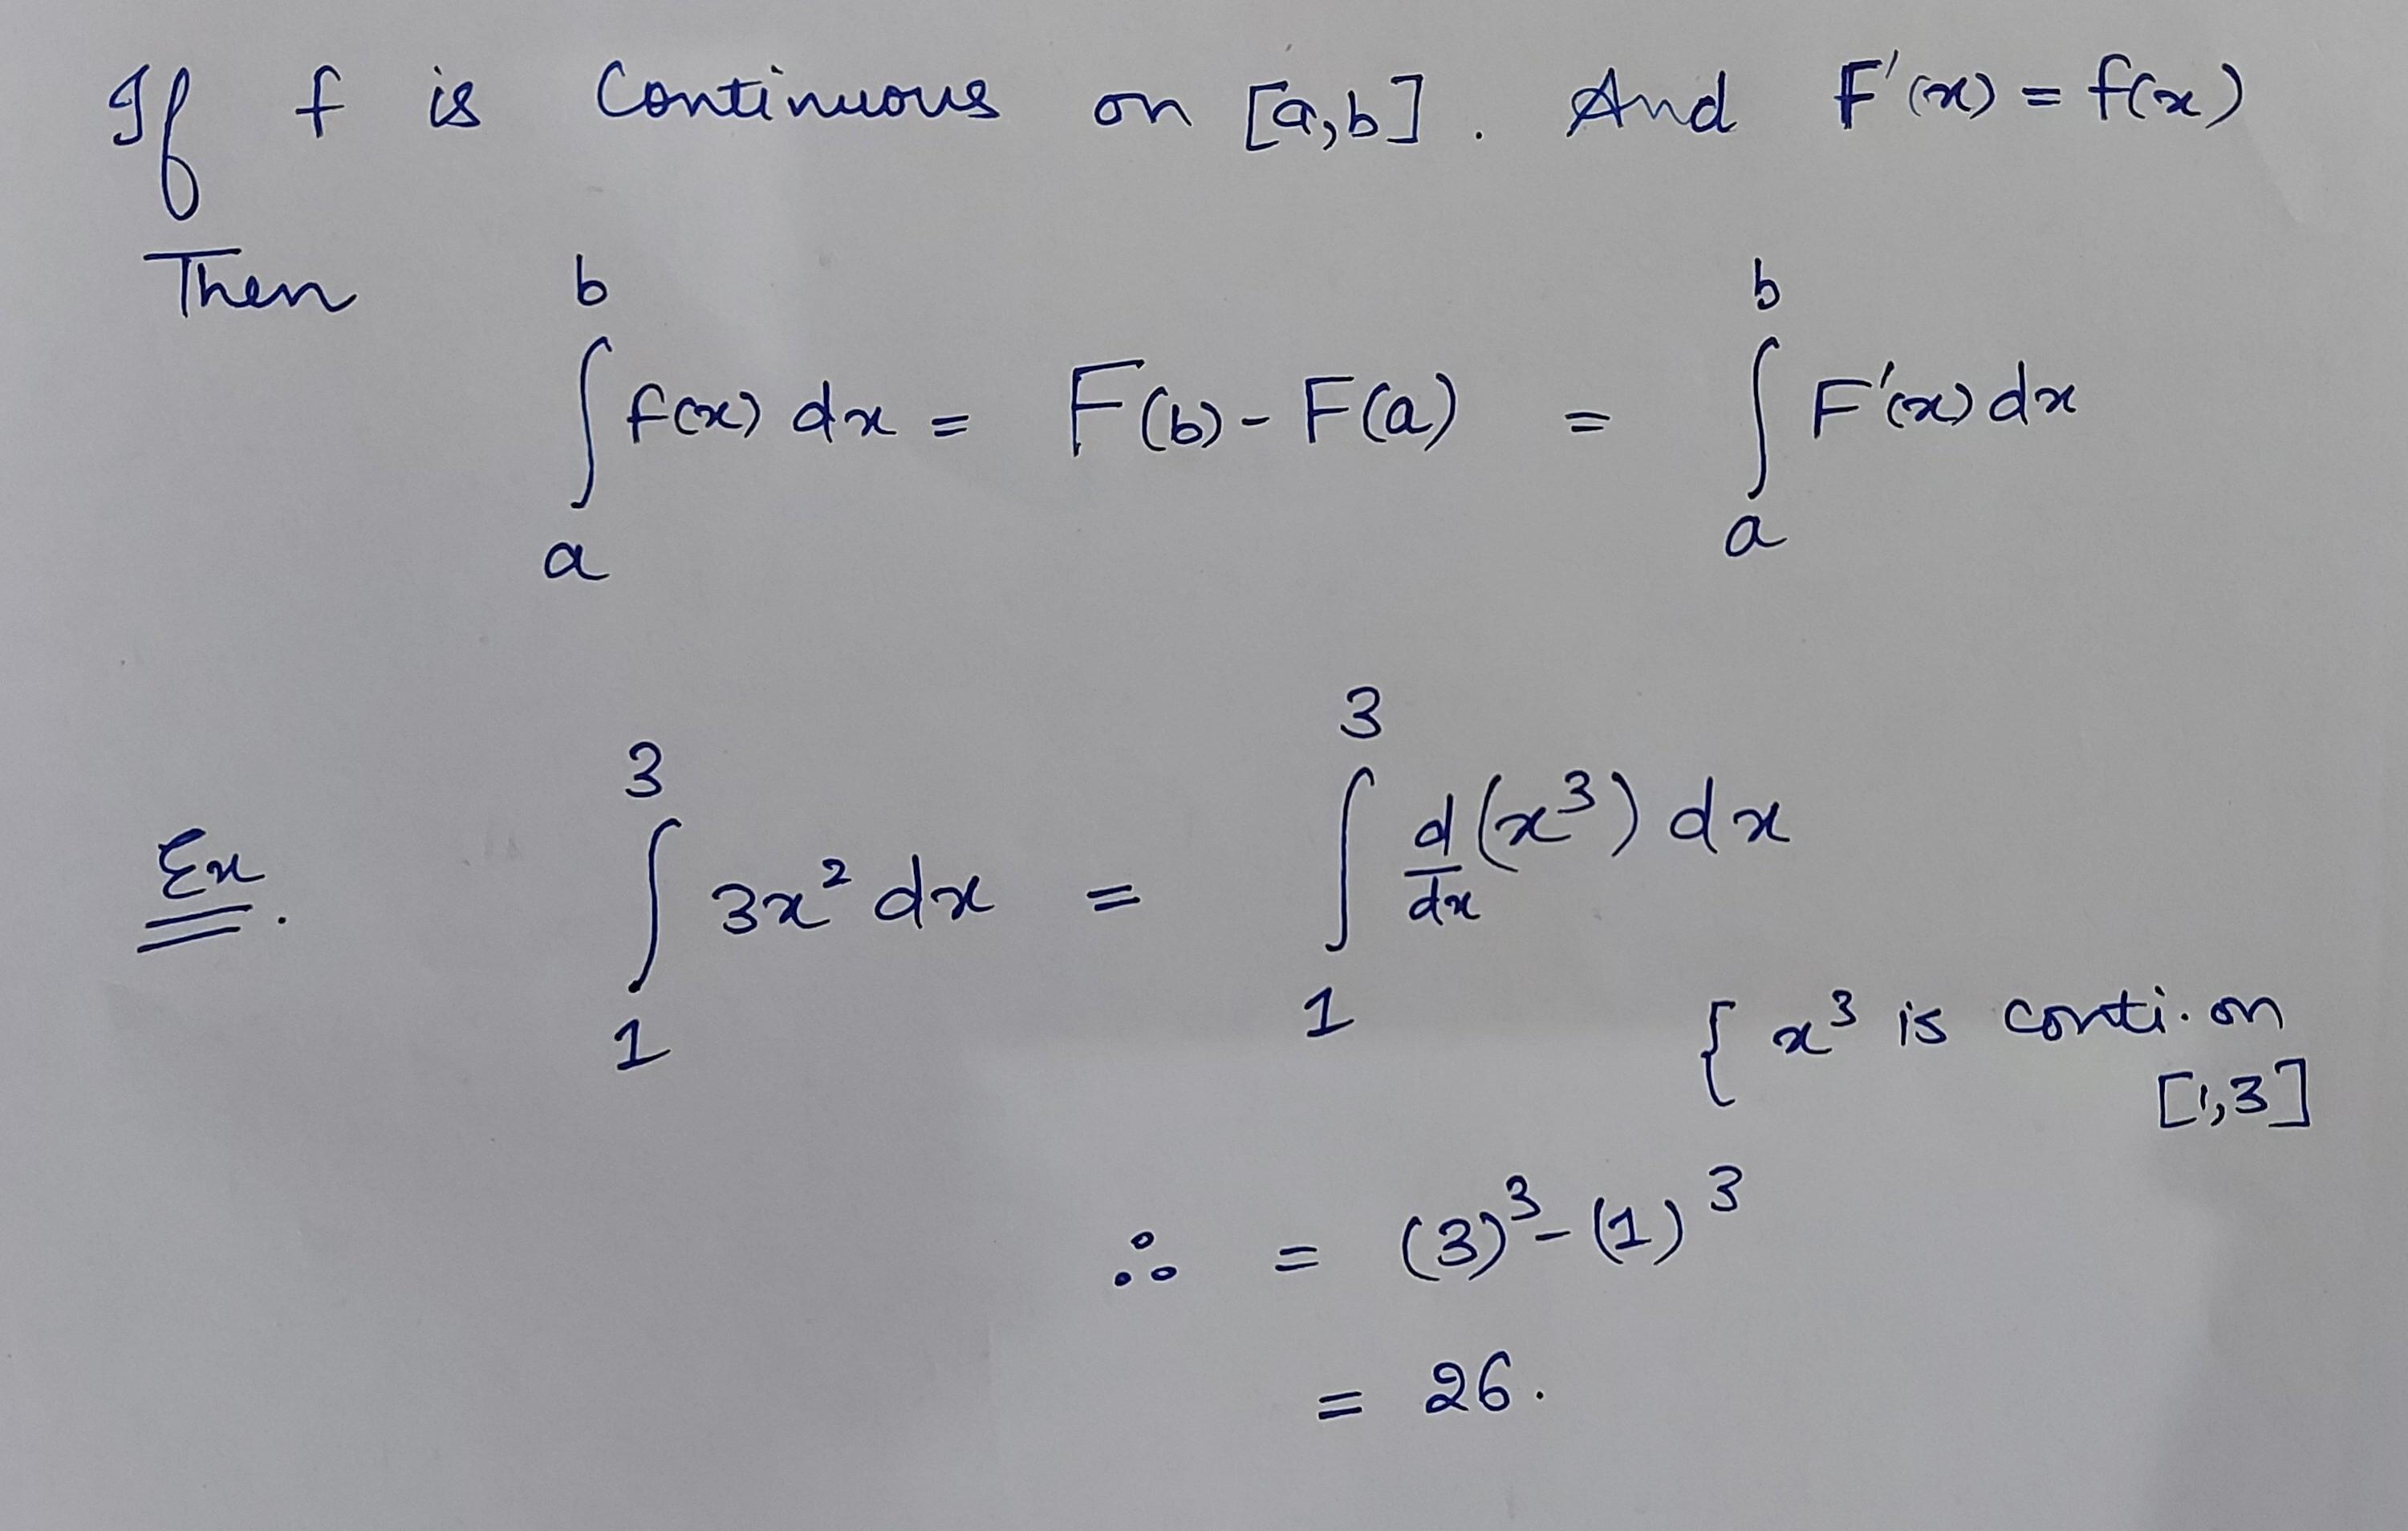 If f is Continuous on [a,b]. And F'(x) = f(x)
Then ∫_a^b f(x) dx = F(b) - F(a) = ∫_a^b F'(x) dx
Ex. ∫_1^3 3x² dx = ∫_1^3 d/dx (x³) dx
{ x³ is conti. on
[1,3]
∴ = (3)³ - (1)³
= 26.